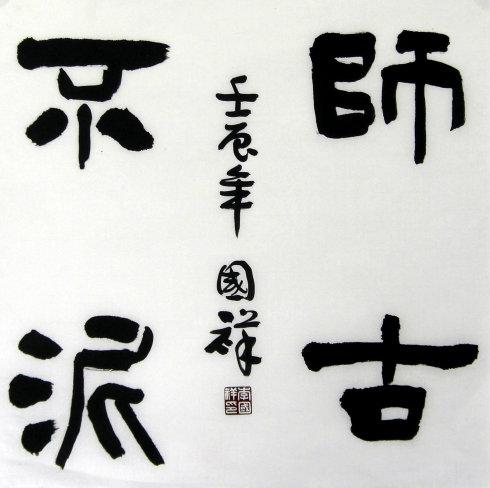 師古
不泥
壬辰年 國祥
李國祥印